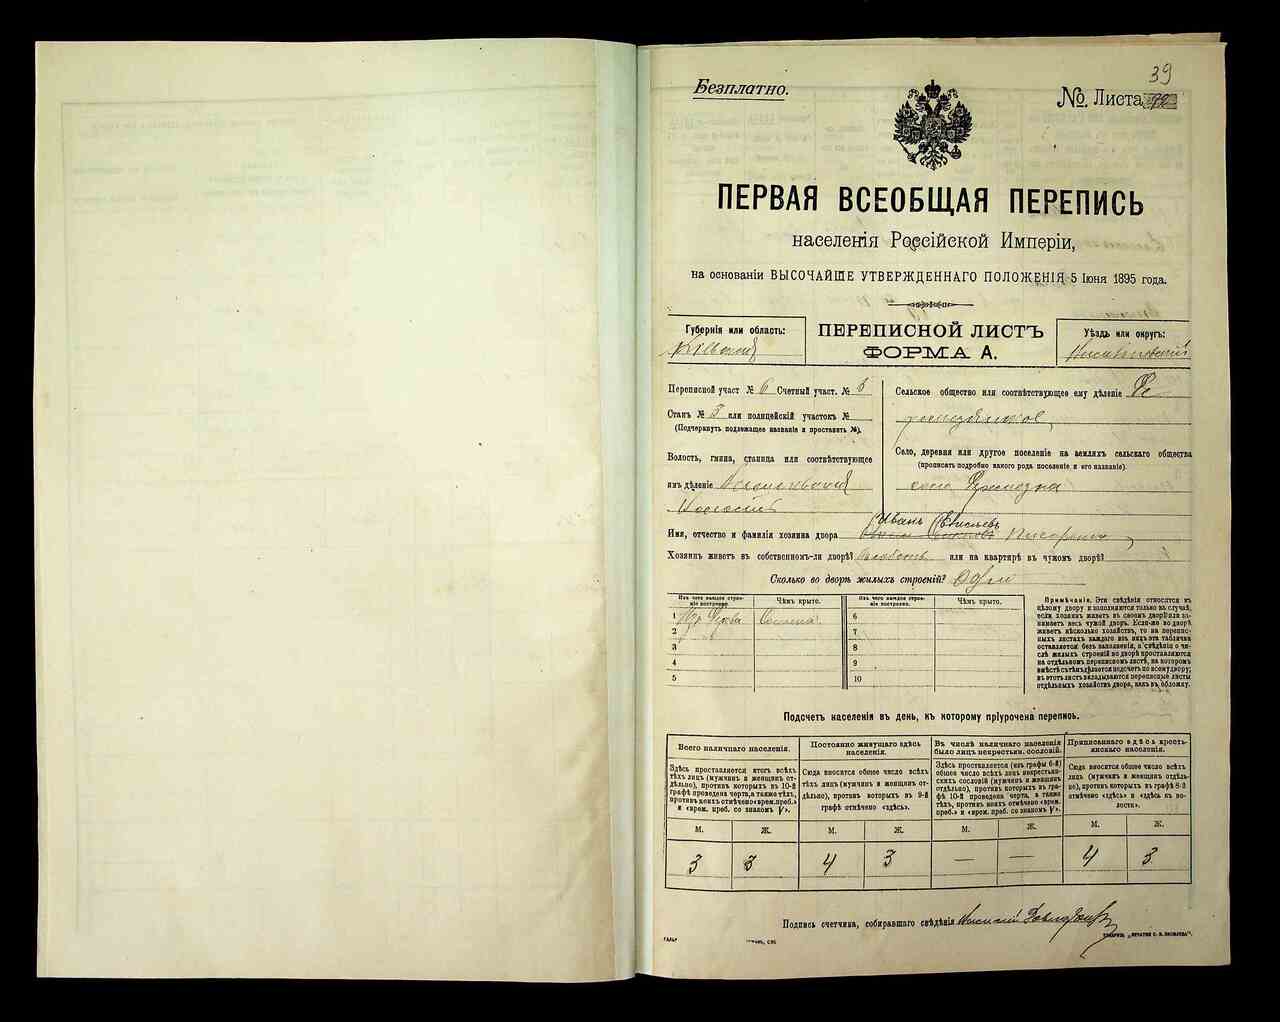 39
Безплатно.
№ Листа
ПЕРВАЯ ВСЕОБЩАЯ ПЕРЕПИСЬ
населенія Россійской Имперіи,
на основаніи ВЫСОЧАЙШЕ УТВЕРЖДЕННАГО ПОЛОЖЕНІЯ 5 Іюня 1895 года.
Губернія или область:
Кіевская
ПЕРЕПИСНОЙ ЛИСТЪ
ФОРМА А.
Уѣздъ или округъ:
Переписной участ. № 6 Счетный участ. №
Станъ № 3 или полицейскій участокъ №
(Подчеркнуть подлежащее названіе и проставить №).
Волость, гмина, станица или соотвѣтствующее
имъ дѣленіе
Волость
Сельское общество или соотвѣтствующее ему дѣленіе
Село, деревня или другое поселеніе на земляхъ сельскаго общества
(прописать подробно какого рода поселеніе и его названіе).
село
Иванъ
Имя, отчество и фамилія хозяина двора
Хозяинъ живетъ въ собственномъ-ли дворѣ? или на квартирѣ въ чужомъ дворѣ?
Сколько во дворѣ жилыхъ строеній? Одно
Изъ чего каждое строеніе построено. Чѣмъ крыто. Изъ чего каждое строеніе построено. Чѣмъ крыто.
1 Изъ дерева Соломой 6
2 7
3 8
4 9
5 10
Примѣчаніе. Эти свѣдѣнія относятся къ
цѣлому двору и заполняются только въ случаѣ,
если хозяинъ живетъ въ своемъ дворѣ или занимаетъ весь чужой дворъ. Если-же во дворѣ
живетъ нѣсколько хозяйствъ, то на переписныхъ листахъ каждаго изъ нихъ эта табличка
оставляется безъ заполненія, а свѣдѣнія о числѣ жилыхъ строеній во дворѣ проставляются
на отдѣльномъ переписномъ листѣ, на которомъ
вмѣстѣ съ тѣмъ дѣлается подсчетъ по всему двору;
въ этотъ листъ вкладываются переписные листы
отдѣльныхъ хозяйствъ двора, какъ въ обложку.
Подсчетъ населенія въ день, къ которому пріурочена перепись.
Всего наличнаго населенія.
Здѣсь проставляется итогъ всѣхъ
тѣхъ лицъ (мужчинъ и женщинъ отдѣльно), противъ которыхъ въ 10-й
графѣ проведена черта, а также тѣхъ,
противъ коихъ отмѣчено «врем. преб.»
и «врем. преб. со знакомъ V».
Постоянно живущаго здѣсь
населенія.
Сюда вносится общее число всѣхъ
тѣхъ лицъ (мужчинъ и женщинъ отдѣльно), противъ которыхъ въ 9-й
графѣ отмѣчено «здѣсь».
Въ числѣ наличнаго населенія
было лицъ некрестьян. сословій.
Здѣсь проставляется (изъ графы 6-й)
общее число всѣхъ лицъ некрестьянскихъ сословій (мужчинъ и женщинъ
отдѣльно), противъ которыхъ въ графѣ 10-й проведена черта, а также
тѣхъ, противъ коихъ отмѣчено «врем.
преб.» и «врем. преб. со знакомъ V».
Приписаннаго здѣсь крестьянскаго населенія.
Сюда вносится общее число всѣхъ
лицъ (мужчинъ и женщинъ отдѣльно), противъ которыхъ въ графѣ 8-й
отмѣчено «здѣсь» и «здѣсь въ волости».
М. Ж. М. Ж. М. Ж. М. Ж.
3 3 4 3 — — 4 3
Подпись счетчика, собиравшаго свѣдѣнія